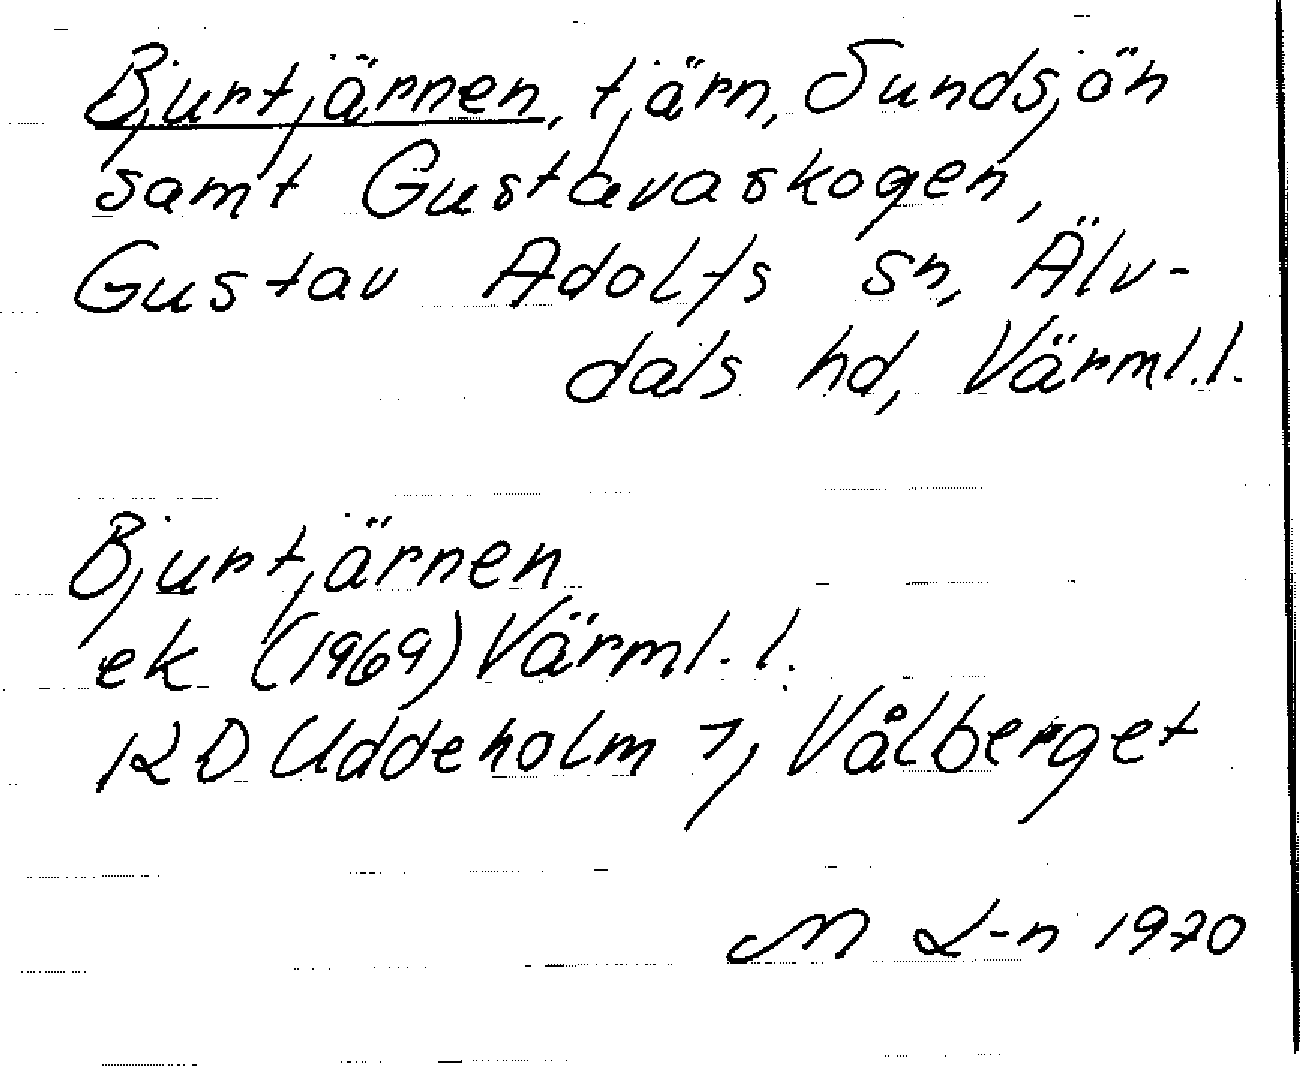 Bjurtjärnen, tjärn, Sundsjön
samt Gustavaskogen,
Gustav Adolfs sn, Älv-
dals hd, Värml.l.
Bjurtjärnen
ek (1969) Värml.l.
RD Uddeholm 7, Vålberget
M L-n 1970